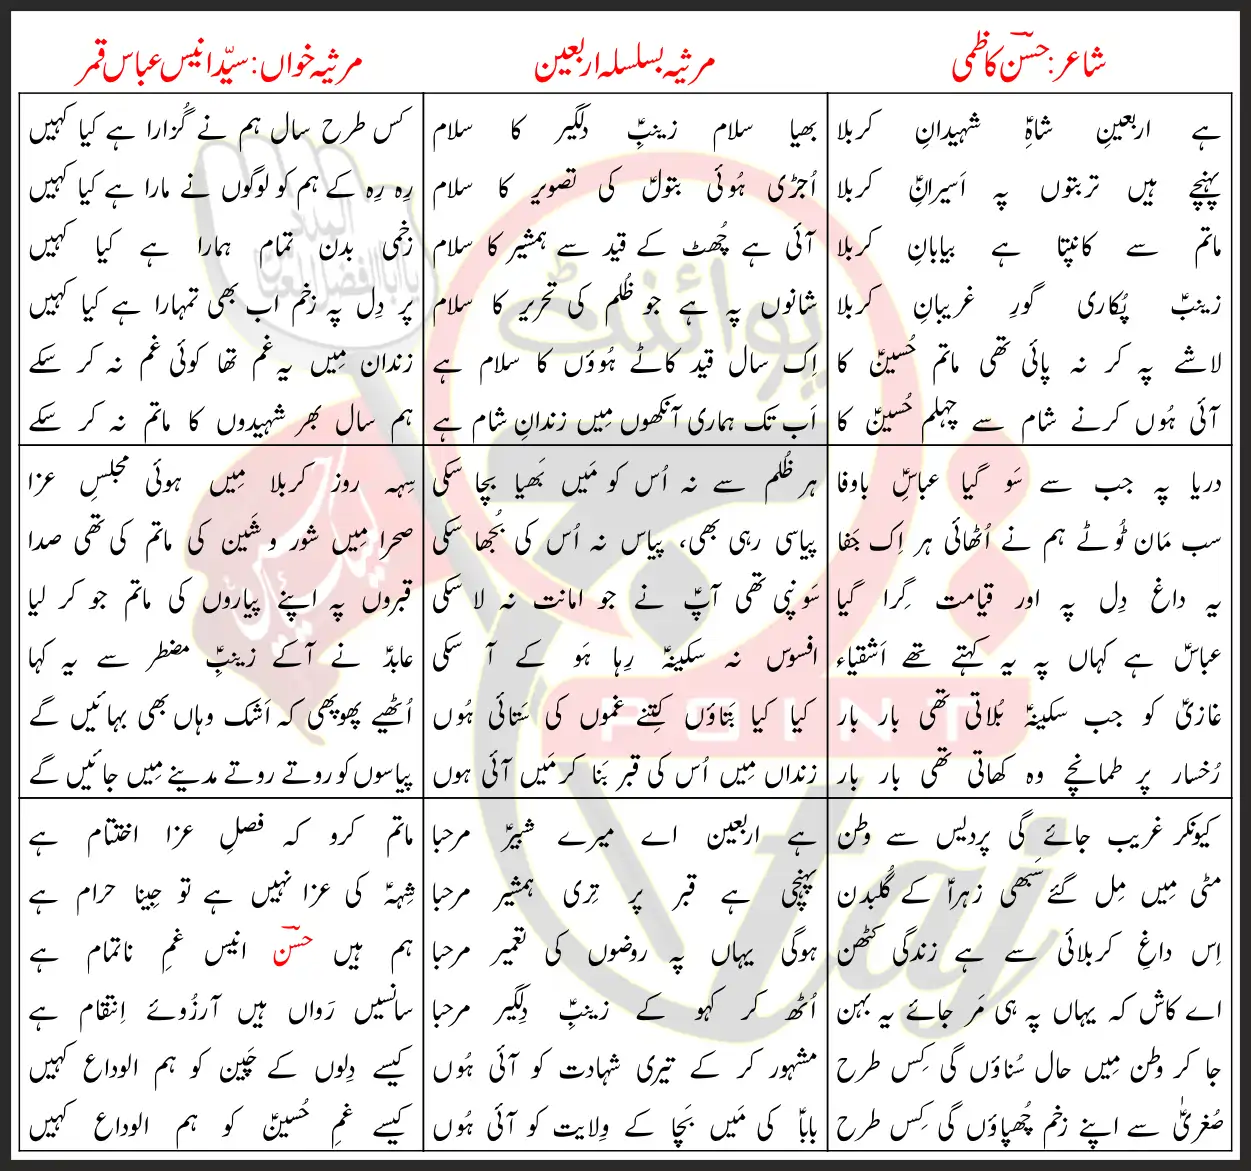 شاعر: حسنؔ کاظمی
مرثیہ بسلسلہ اربعین
مرثیہ خواں: سیّد انیس عباس قمر
ہے اربعینِ شاہِؑ شہیدانِ کربلا
پہنچے ہیں تربتوں پہ اَسیرانِؑ کربلا
ماتم سے کانپتا ہے بیابانِ کربلا
زینبؑ پُکاری گورِ غریبانِ کربلا
لاشے پہ کر نہ پائی تھی ماتم حُسینؑ کا
آئی ہُوں کرنے شام سے چہلم حُسینؑ کا
بھیا سلام زینبِؑ دلگیر کا سلام
اُجڑی ہُوئی بتولؑ کی تصویر کا سلام
آئی ہے چُھٹ کے قید سے ہمشیر کا سلام
شانوں پہ ہے جو ظُلم کی تحریر کا سلام
اِک سال قید کاٹے ہُوؤں کا سلام ہے
اَب تک ہماری آنکھوں مِیں زندانِ شام ہے
کس طرح سال ہم نے گُزارا ہے کیا کہیں
رِہ رِہ کے ہم کو لوگوں نے مارا ہے کیا کہیں
زخمی بدن تمام ہمارا ہے کیا کہیں
پر دِل پہ زخم اب بھی تمہارا ہے کیا کہیں
زندان مِیں یہ غم تھا کوئی غم نہ کر سکے
ہم سال بھر شہیدوں کا ماتم نہ کر سکے
دریا پہ جب سے سَو گیا عباسِؑ باوفا
سب مَان ٹُوٹے ہم نے اُٹھائی ہر اِک جَفا
یہ داغ دِل پہ اور قیامت گِرا گیا
عباسؑ ہے کہاں پہ یہ کہتے تھے اَشقیاء
غازیؑ کو جب سکینہؑ بُلاتی تھی بار بار
رُخسار پر طمانچے وہ کھاتی تھی بار بار
ہر ظُلم سے نہ اُس کو مَیں بَھیا بچا سکی
پیاسی رہی بھی، پیاس نہ اُس کی بُجھا سکی
سَونپی تھی آپؑ نے جو امانت نہ لا سکی
افسوس نہ سکینہؑ رِہا ہَو کے آ سکی
کیا کیا بَتاؤں کِتنے غموں کی سَتائی ہُوں
زنداں مِیں اُس کی قبر بَنا کر مَیں آئی ہوں
سِہہ روز کربلا مِیں ہوئی مجلسِ عزا
صحرا مِیں شور و شَین کی ماتم کی تھی صدا
قبروں پہ اپنے پیاروں کی ماتم جو کر لیا
عابدؑ نے آکے زینبِؑ مضطر سے یہ کہا
اُٹھیے پھوپھی کہ اَشک وہاں بھی بہائیں گے
پیاسوں کو روتے روتے مدینے مِیں جائیں گے
کیونکر غریب جائے گی پردیس سے وطن
مٹی مِیں مِل گئے سَبھی زہراؑ کے گُلبدن
اِس داغِ کربلائی سے ہے زندگی کٹھن
اے کاش کہ یہاں پہ ہی مَر جائے یہ بہن
جا کر وطن مِیں حال سُناؤں گی کِس طرح
صُغریٰؑ سے اپنے زخم چُھپاؤں گی کِس طرح
ہے اربعین اے میرے شبیرؑ مرحبا
پہنچی ہے قبر پر تِری ہمشیر مرحبا
ہوگی یہاں پہ روضوں کی تعمیر مرحبا
اُٹھ کر کہو کے زینبِؑ دِلگیر مرحبا
مشہور کر کے تیری شہادت کو آئی ہُوں
باباؑ کی مَیں بَچا کے وِلایت کو آئی ہُوں
ماتم کرو کہ فصلِ عزا اختتام ہے
شِہہؑ کی عزا نہیں ہے تو جِینا حرام ہے
ہم ہیں حسنؔ انیس غمِ ناتمام ہے
سانسیں رَواں ہیں آرزُوئے اِنتقام ہے
کیسے دِلوں کے چَین کو ہم الوداع کہیں
کیسے غمِ حُسینؑ کو ہم الوداع کہیں
پوائنٹ
POINT
taj
لبیک یا حسینؑ